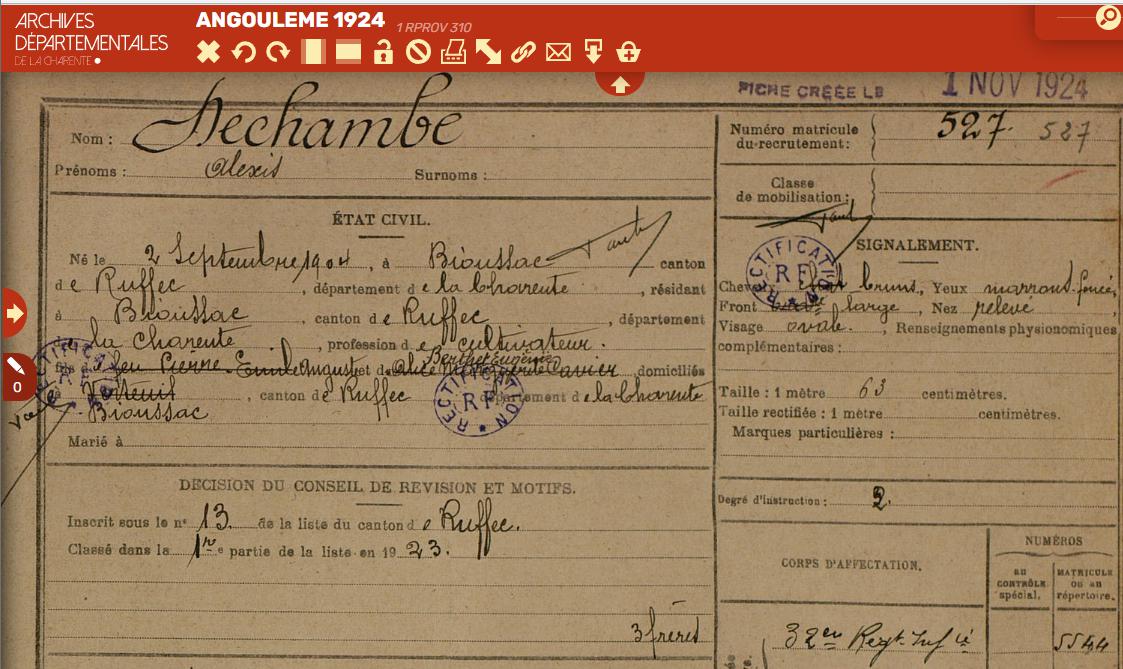 ARCHIVES
DÉPARTEMENTALES
DE LA CHARENTE
ANGOULEME 1924
1 RPROV 310
0
FICHE CRÉÉE LB 1 NOV 1924
Nom : Dechambe
Prénoms : Alexis Surnoms :
ÉTAT CIVIL.
Né le 2 Septembre 1904, à Bioussac canton
de Ruffec, département de la Charente, résidant
à Bioussac, canton de Ruffec, département
de la Charente, profession de cultivateur.
Berthe Eugénie
fils de feu Pierre Emile August et de Alice Marguerite Cavier domiciliés
à Verteuil, canton de Ruffec département de la Charente
Bioussac
Marié à
RECTIFICATION RF
RECTIFICATION RF
DÉCISION DU CONSEIL DE REVISION ET MOTIFS.
Inscrit sous le n° 13 de la liste du canton de Ruffec.
Classé dans la 1re partie de la liste en 1923.
3 frères
Numéro matricule
du recrutement : 527. 527
Classe
de mobilisation :
SIGNALEMENT.
RECTIFICATION RF
Chev bruns, Yeux marrons foncé,
Front large, Nez relevé
Visage ovale. , Renseignements physionomiques
complémentaires :
Taille : 1 mètre 63 centimètres.
Taille rectifiée : 1 mètre centimètres.
Marques particulières :
Degré d'instruction : 2.
CORPS D'AFFECTATION.
NUMÉROS
au
CONTRÔLE
spécial.
MATRICULE
ou au
répertoire.
32en Regt Inf ie 5544